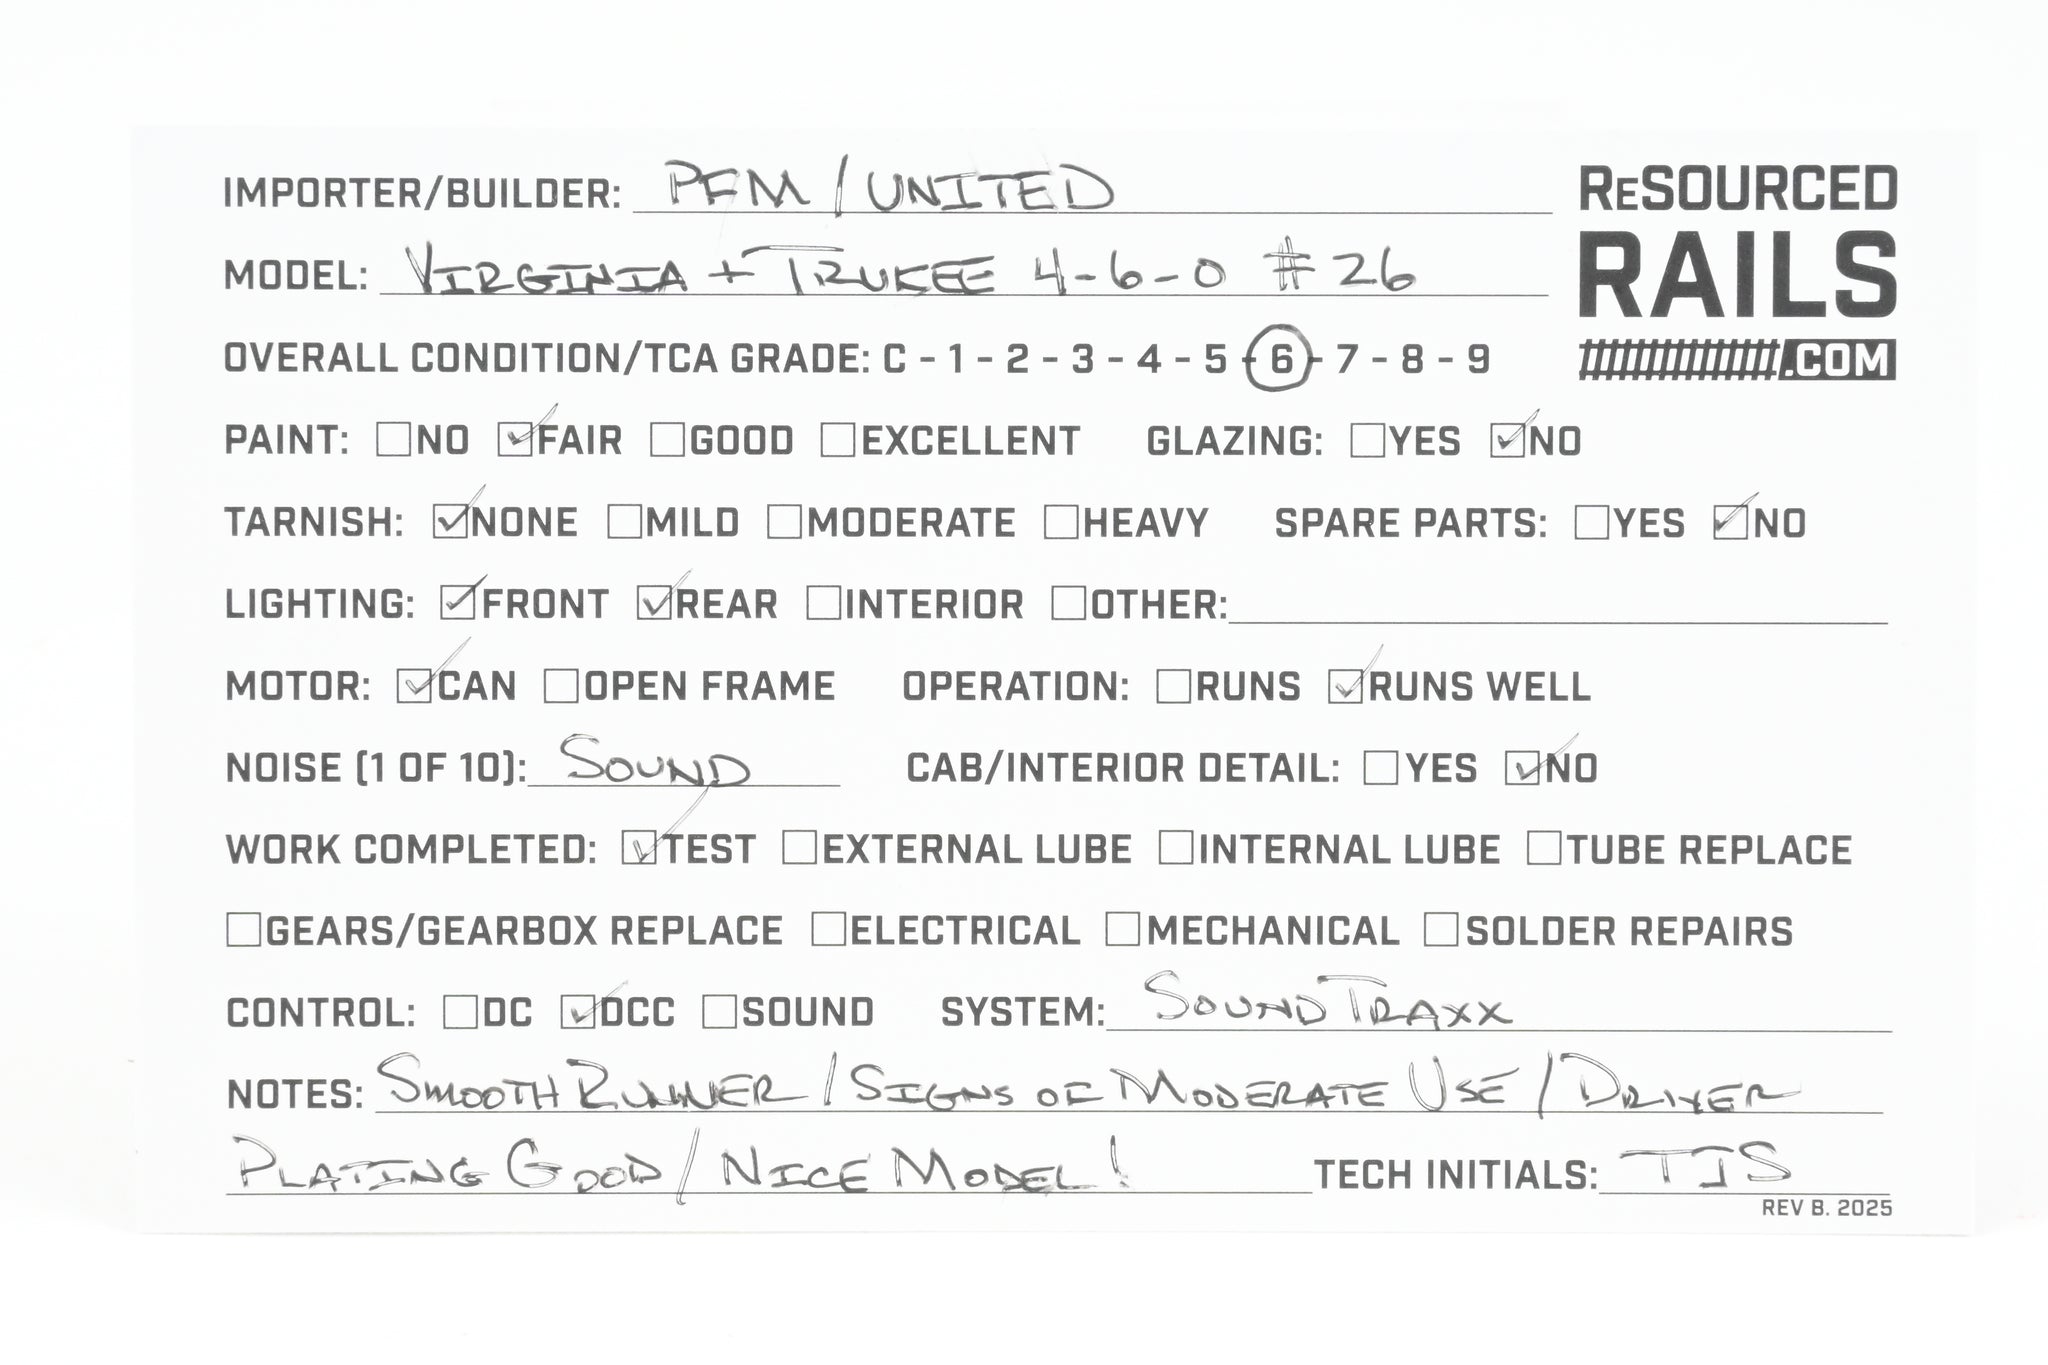 IMPORTER/BUILDER: PFM / UNITED
RESOURCED
RAILS
.COM
MODEL: VIRGINIA + TRUKEE 4-6-0 #26
OVERALL CONDITION/TCA GRADE: C - 1 - 2 - 3 - 4 - 5 - 6 - 7 - 8 - 9
PAINT: ☐NO ☑FAIR ☐GOOD ☐EXCELLENT GLAZING: ☐YES ☑NO
TARNISH: ☑NONE ☐MILD ☐MODERATE ☐HEAVY SPARE PARTS: ☐YES ☑NO
LIGHTING: ☑FRONT ☑REAR ☐INTERIOR ☐OTHER:
MOTOR: ☑CAN ☐OPEN FRAME OPERATION: ☐RUNS ☑RUNS WELL
NOISE (1 OF 10): SOUND CAB/INTERIOR DETAIL: ☐YES ☑NO
WORK COMPLETED: ☑TEST ☐EXTERNAL LUBE ☐INTERNAL LUBE ☐TUBE REPLACE
☐GEARS/GEARBOX REPLACE ☐ELECTRICAL ☐MECHANICAL ☐SOLDER REPAIRS
CONTROL: ☐DC ☑DCC ☐SOUND SYSTEM: SOUNDTRAXX
NOTES: SMOOTH RUNNER / SIGNS OF MODERATE USE / DRIVER
PLATING GOOD / NICE MODEL! TECH INITIALS: TJS
REV B. 2025